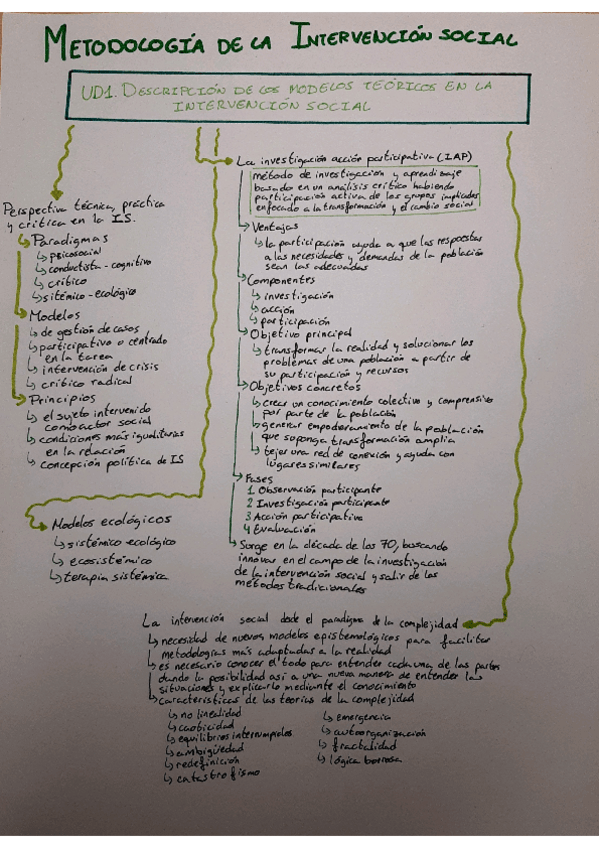 METODOLOGÍA DE LA INTERVENCIÓN SOCIAL
UD1. DESCRIPCIÓN DE LOS MODELOS TEÓRICOS EN LA
INTERVENCIÓN SOCIAL
Perspectiva técnica, práctica
y crítica en la IS.
↳ Paradigmas
↳ psicosocial
↳ conductista-cognitivo
↳ crítico
↳ sitémico-ecológico
↳ Modelos
↳ de gestión de casos
↳ participativo o centrado
en la tarea
↳ intervención de crisis
↳ crítico radical
↳ Principios
↳ el sujeto intervenido
como actor social
↳ condiciones más igualitarias
en la relación
↳ concepción política de IS
Modelos ecológicos
↳ sistémico ecológico
↳ ecosistémico
↳ terapia sistémica
La investigación acción participativa (IAP)
método de investigación y aprendizaje
basado en un análisis crítico habiendo
participación activa de los grupos implicados
enfocado a la transformación y el cambio social
↳ Ventajas
↳ la participación ayuda a que las respuestas
a las necesidades y demandas de la población
sean las adecuadas
↳ Componentes
↳ investigación
↳ acción
↳ participación
↳ Objetivo principal
↳ transformar la realidad y solucionar los
problemas de una población a partir de
su participación y recursos
↳ Objetivos concretos
↳ crear un conocimiento colectivo y comprensivo
por parte de la población
↳ generar empoderamiento de la población
que suponga transformación amplia
↳ tejer una red de conexión y ayuda con
lugares similares
↳ Fases
1 Observación participante
2 Investigación participante
3 Acción participativa
4 Evaluación
↳ Surge en la década de los 70, buscando
innovar en el campo de la investigación
de la intervención social y salir de los
métodos tradicionales
La intervención social desde el paradigma de la complejidad
↳ necesidad de nuevos modelos epistemológicos para facilitar
metodologías más adaptadas a la realidad
↳ es necesario conocer el todo para entender cada una de las partes
dando la posibilidad así a una nueva manera de entender las
situaciones y explicarlo mediante el conocimiento
↳ Características de las teorías de la complejidad
↳ no linealidad
↳ caoticidad
↳ equilibrios interrumpidos
↳ ambigüedad
↳ redefinición
↳ catastrofismo
↳ emergencia
↳ autoorganización
↳ fractalidad
↳ lógica borrosa